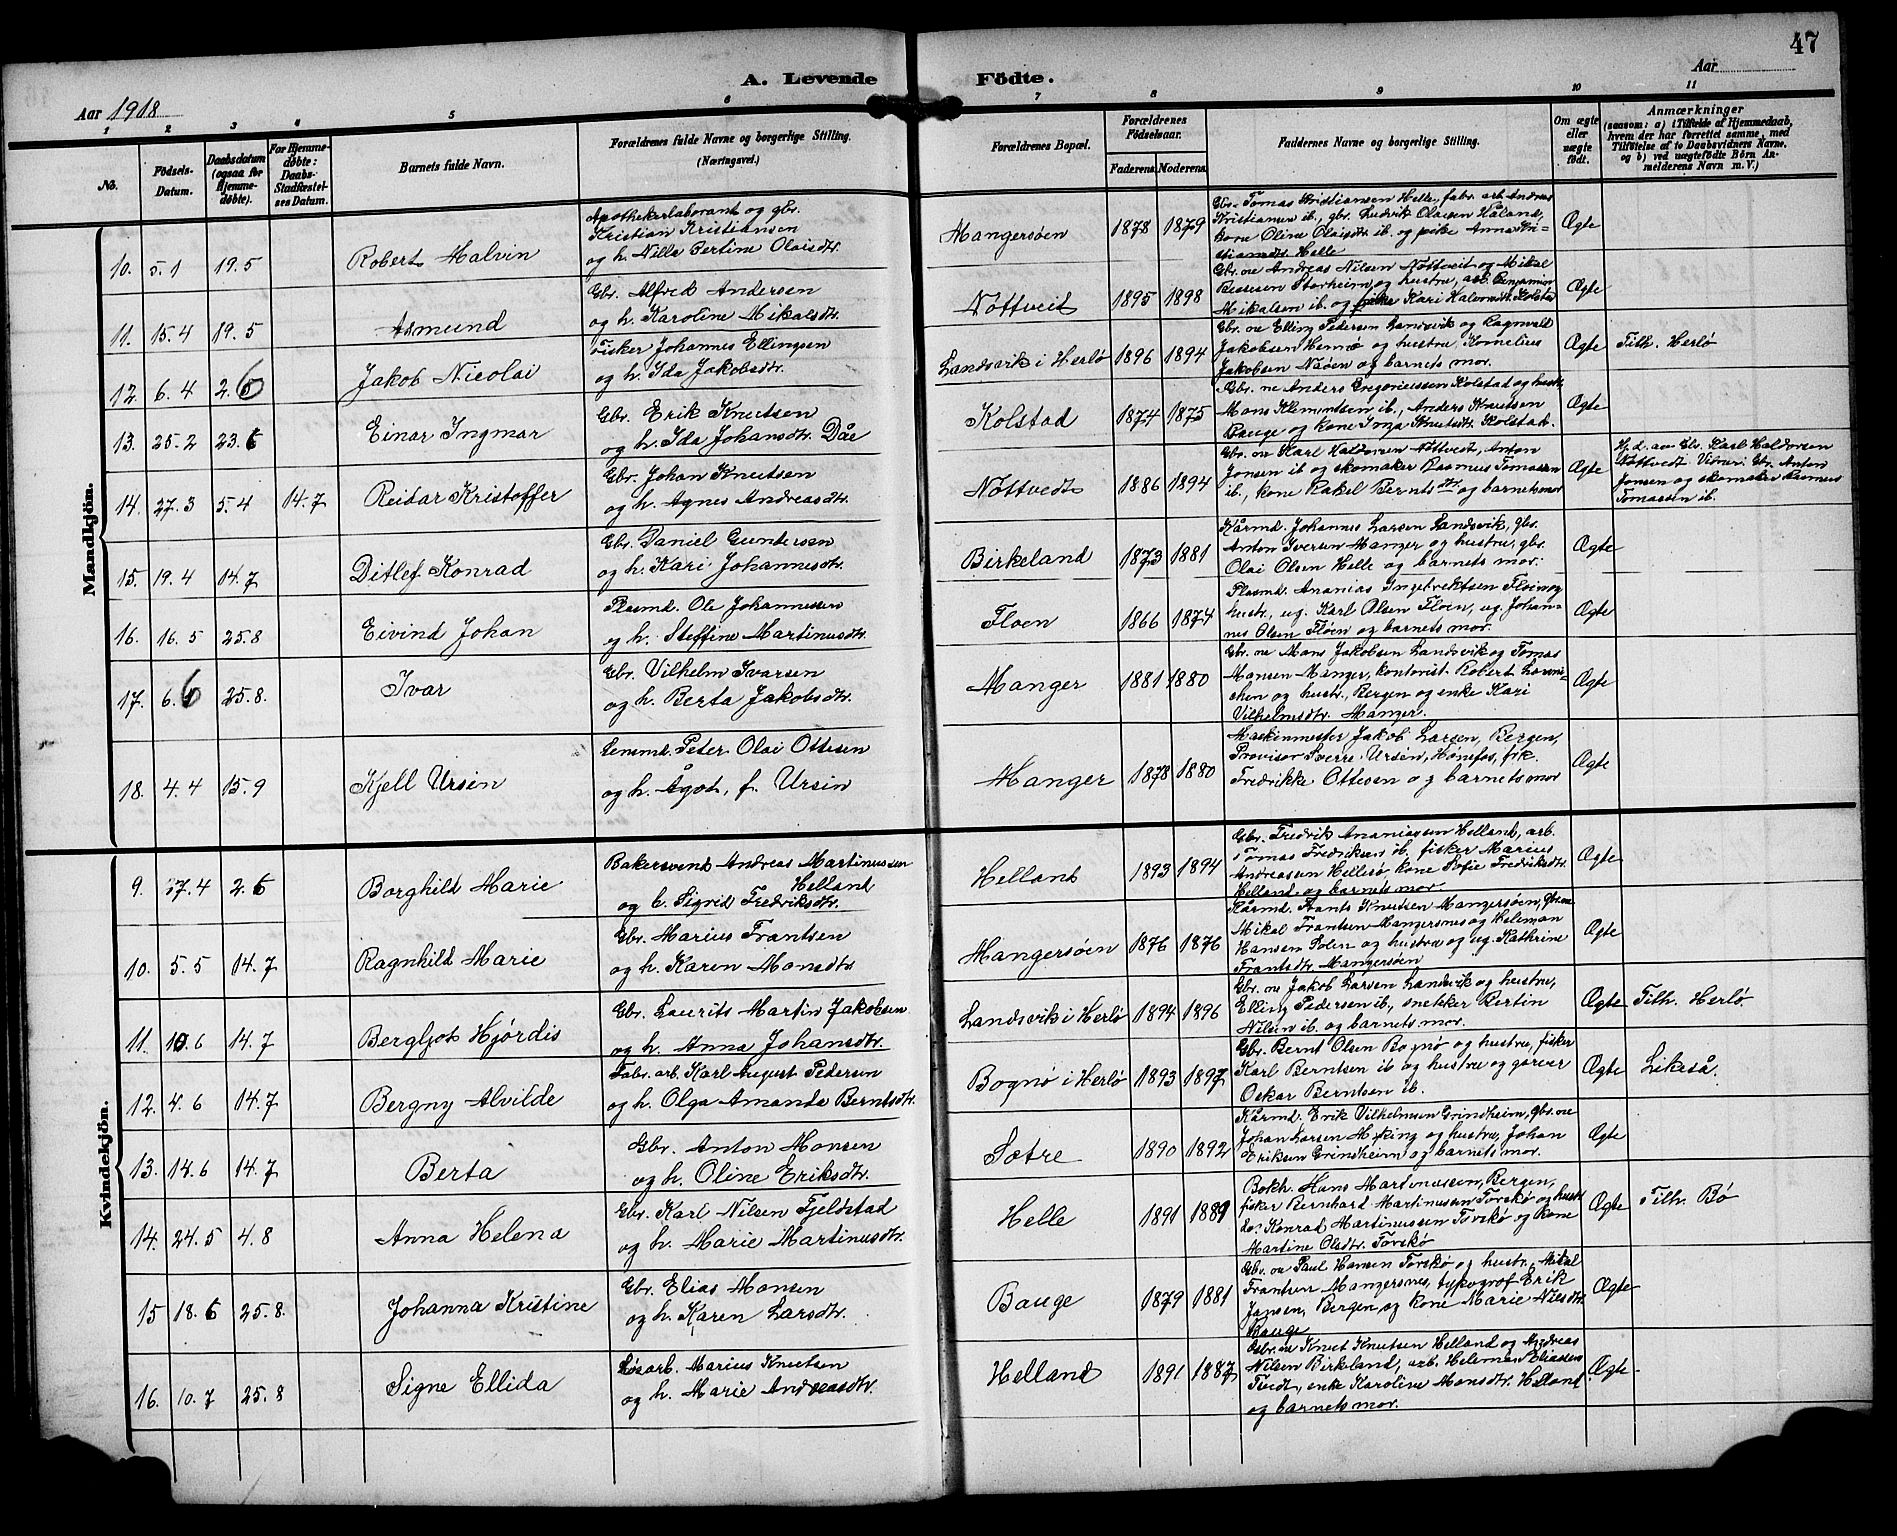 47
A. Levende Födte.
Aar 1918
Aar
1 2 3 4 5 6 7 8 9 10 11
No.
Födsels-
Datum.
Daabsdatum
(ogsaa for
Hjemme-
døbte).
For Hjemme-
døbte:
Daabs-
Stadfæstel-
ses Datum.
Barnets fulde Navn.
Forældrenes fulde Navne og borgerlige Stilling.
(Næringsvei.)
Forældrenes Bopæl.
Forældrenes
Födselsaar.
Faderens. Moderens.
Faddernes Navne og borgerlige Stilling.
Om ægte
eller
uægte
født.
Anmærkninger
(saasom: a) i Tilfælde af Hjemmedaab,
hvem der har forrettet samme, med
Tilføielse af to Daabsvidners Navne,
og b) ved uægtefödte Börn An-
melderens Navn m. V.)
Mandkjön.
10. 5.1 19.5 Robert Malvin
Apothekerlaborant og gbr.
Kristian Kristiansen
og h. Nilla Bertine Olaisdtr.
Mangersøen 1878 1879
Gbr. Tomas Kristiansen Helle, fabr. arb. Andreas
Kristiansen ib., gbr. Ludvik Olaisen Håland,
kone Oline Olaisdtr ib. og pike Anna Kri-
stiansdtr. Helle
Ægte
11. 15.4 19.5 Asmund
Gbr. Alfred Andersen
og h. Karoline Mikalsdtr.
Nöttveit 1895 1898
Gbr.ne Andreas Nilsen Nöttveit og Mikal
Storheim og hustru, arb. Benjamin
Mikalsen ib. og Kari Kolstad
Ægte
12. 6.4 2.6 Jakob Nicolai
Fisker Johannes Ellingsen
og h. Ida Jakobsdtr.
Landsvik i Herlø 1896 1894
Gbr. ne Elling Pedersen Landsvik og Ragnvald
Jakobsen og hustru, Kornelius
Jakobsen Nåøen og barnets mor.
Ægte Tilh. Herlø
13. 25.2 23.6 Einar Ingmar
Gbr. Erik Knutsen
og h. Ida Johansdtr. Dåe
Kolstad 1874 1875
Gbr. ne Anders Gregoriussen Kolstad og hustr.
Mons Klemmetsen ib., Anders Knutsen
Bauge og kone Inga Knutsdtr. Kolstad.
Ægte
14. 27.3 5.4 14.7 Reidar Kristoffer
Gbr. Johan Knutsen
og h. Agnes Andreasdtr.
Nöttvedt 1886 1894
Gbr. ne Karl Haldorsen Nöttvedt, Anton
Jonsen ib og skomaker Rasmus Tomassen
ib., kone Rakel Berntsdtr. og barnets mor
Ægte
Hj.d. av Gbr. Karl Haldorsen
Nöttvedt. Vitner: Gbr. Anton
Jonsen og skomaker Rasmus
Tomassen ib.
15. 19.4 14.7 Ditlef Konrad
Gbr. Daniel Gundersen
og h. Kari Johannesdtr.
Birkeland 1873 1881
Kårmd. Johannes Larsen Landsvik, gbr.
Anton Iversen Manger og hustru, gbr.
Olai Olsen Helle og barnets mor.
Ægte
16. 16.5 25.8 Eivind Johan
Plasmd. Ole Johannessen
og h. Steffine Martinusdtr.
Floen 1866 1874
Plasmd. Ananias Ingebrektsen Floen og
hustr., ug. Karl Olsen Floen, ug. Johan-
nes Olsen Floen og barnets mor.
Ægte
17. 6.6 25.8. Ivar
Gbr. Vilhelm Ivarsen
og h. Berta Jakobsdtr.
Manger 1881 1880
Gbr. ne Mons Jakobsen Landsvik og Tomas
Monsen Manger, kontorist Robert
og hustr., Bergen og enke Kari
Vilhelmsdtr. Manger.
Ægte
18. 4.4 15.9 Kjell Ursin
Lensmd. Peter Olai Ottesen
og h. Ågot, f. Ursin
Manger 1878 1880
Maskinmester Jakob Larsen, Bergen,
Provisor Sverre Ursin, Hønefos, frk.
Fredrikke Ottesen og barnets mor
Ægte
Kvindekjön.
9. 27.4 2.6 Borghild Marie
Bakersvend Andreas Martinussen
Helland
og h. Sigrid Fredriksdtr.
Helland 1893 1894
Gbr. Fredrik Ananiassen Helland, arb.
Tomas Fredriksen ib., fisker Marius
Andreassen Hellesø, kone Sofie Fredriksdtr.
Helland og barnets mor
Ægte
10. 5.5 14.7 Ragnhild Marie
Gbr. Marius Frantsen
og h. Karen Monsdtr.
Mangersøen 1876 1876
Kårmd. Frants Knutsen Mangersøen, gbr.ne
Mikal Frantsen Mangersnes og Heleman
Hansen Solen og hustru og ug. Kathrine
Frantsdtr. Mangersøen
Ægte
11. 10.6 14.7 Bergljot Hjördis
Gbr. Laurits Martin Jakobsen
og h. Anna Johansdtr.
Landsvik i Herlø 1894 1896
Gbr. ne Jakob Larsen Landsvik og hustru,
Elling Pedersen ib., snekker Bertin
Nilsen ib. og barnets mor.
Ægte Tilh. Herlø
12. 4.6 14.7 Bergny Alvilde
Fabr. arb. Karl August Pedersen
og h. Olga Amanda Berntsdtr.
Bognø i Herlø 1893 1897
Gbr. Bernt Olsen Bognø og hustru, fisker
Karl Berntsen ib og hustru og garver
Oskar Berntsen ib.
Ægte Likeså.
13. 14.6 14.7 Berta
Gbr. Anton Monsen
og h. Oline Eriksdtr.
Sætre 1890 1892
Kårmd. Erik Vilhelmsen Grindheim, gbr. ne
Johan Larsen Myking og hustru, Johan
Eriksen Grindheim og barnets mor.
Ægte
14. 24.5 4.8 Anna Helena
Gbr. Karl Nilsen Fjeldstad
og h. Marie Martinusdtr.
Helle 1891 1889
Bokh. Hans Martinussen, Bergen,
fisker Bernhard Martinussen Torskø og hustr.
do. Konrad Martinussen Torskø og kone
Martine Olsdtr. Torskø
Ægte Tilh. Bø
15 18.6 25.8. Johanna Kristine
Gbr. Elias Monsen
og h. Karen Larsdtr.
Bauge 1879 1881
Gbr. ne Paul Hansen Torskø og hustr., Mikal
Frantsen Mangersnes, typograf Erik
Jansen, Bergen og kone Marie Nilsdtr.
Bauge
Ægte
16. 10.7 25.8 Signe Ellida
Løsarb. Marius Knutsen
og h. Marie Andreasdtr.
Helland 1891 1887
Gbr. ne Knut Knutsen Helland og Andreas
Nilsen Birkeland, arb. Heleman Eliassen
Tvedt, enke Karoline Monsdtr. Helland
og barnets mor.
Ægte